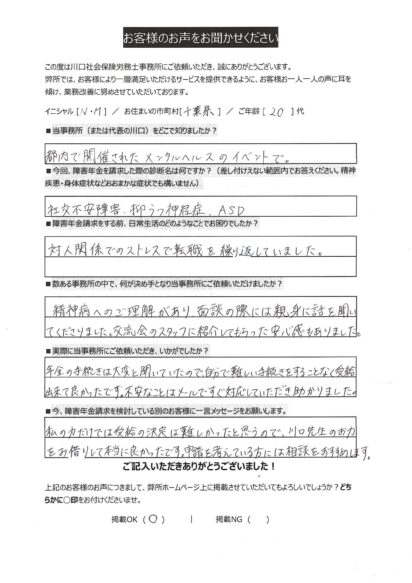 お客様のお声をお聞かせください
この度は川口社会保険労務士事務所にご依頼いただき、誠にありがとうございます。
弊所では、お客様により一層満足いただけるサービスを提供できるように、お客様お一人一人の声に耳を
傾け、業務改善に努めさせていただいております。
イニシャル [N・M] / お住まいの市町村 [千葉県] / ご年齢 [20] 代
■当事務所（または代表の川口）をどこで知りましたか？
都内で開催されたメンタルヘルスのイベントで。
■今回、障害年金を請求した際の診断名は何ですか？（差し付けえない範囲内でお答えください。精神
疾患・身体症状などおおまかな症状でも構いません）
社交不安障害、抑うつ神経症、ASD
■障害年金請求をする前、日常生活のどのようなことでお困りでしたか？
対人関係でのストレスで転職を繰り返していました。
■数ある事務所の中で、何が決め手となり当事務所にご依頼いただけましたか？
精神病へのご理解があり、面談の際には親身に話を聞い
てくださりました。交流会のスタッフに紹介してもらった安心感もありました。
■実際に当事務所にご依頼いただき、いかがでしたか？
年金の手続きは大変と聞いていたので、自分で難しい手続きをすることなく受給
出来て良かったです。不安なことはメールですぐ対応していただき助かりました。
■今、障害年金請求を検討している別のお客様に一言メッセージをお願いします。
私の力だけでは受給の決定は難しかったと思うので、川口先生のお力
をお借りして本当に良かったです。申請を考えている方には相談をおすすめします。
ご記入いただきありがとうございました！
上記のお客様のお声につきまして、弊所ホームページ上に掲載させていただいてもよろしいでしょうか？どち
らかに〇印をお付けくださいませ。
掲載OK （〇） | 掲載NG （ ）